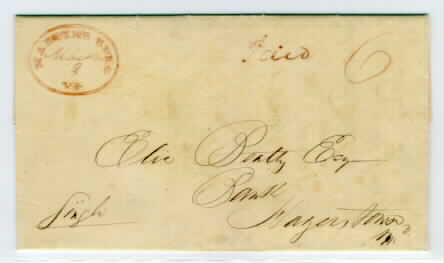 MARTINSBURG
VA
Paid 6
Elie Beatty Esq
Bank
Hagerstown
Md
Single